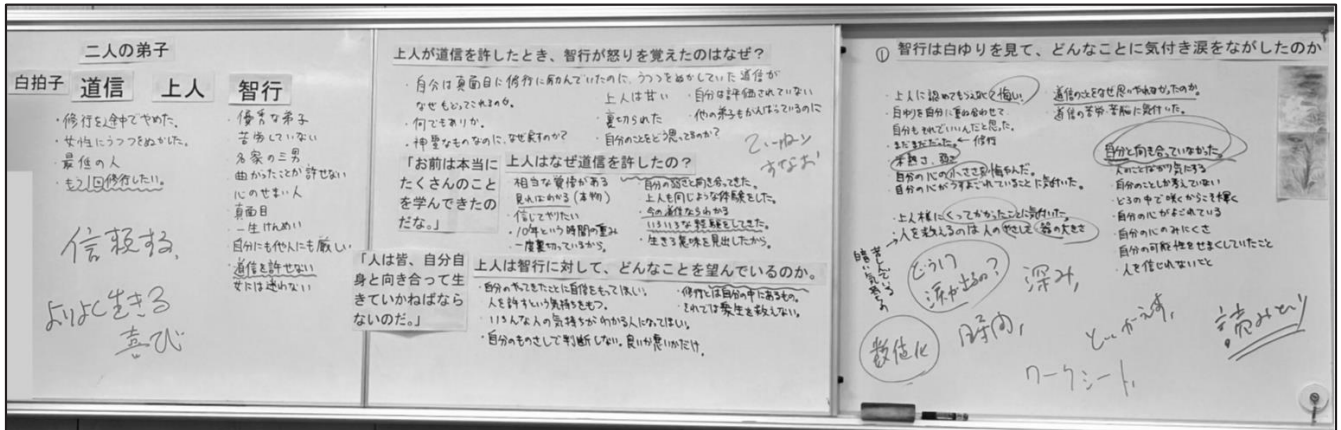 二人の弟子
白拍子 道信 上人 智行
・修行を途中でやめた。
・女性にうつつをぬかした。
・最低の人
・もう1回修行したい。
信頼する、
よりよく生きる
喜び
・優秀な弟子
苦労していない
名家の三男
曲がったことが許せない
心のせまい人
真面目
一生けんめい
・自分にも他人にも厳しい
・道信を許せない
女には迷わない
上人が道信を許したとき、智行が怒りを覚えたのはなぜ？
・自分は真面目に修行に励んでいたのに、うつつをぬかしていた道信が
なぜもどってこれるのか。
・何でもありか。
・神聖なものなのに、なぜ戻すのか？
上人は甘い
裏切られた
・自分は評価されていない
・他の弟子もがんばっているのに
自分のことをどう思ってるのか？
ていねい
すなお
「お前は本当に
たくさんのこと
を学んできたの
だな。」
上人はなぜ道信を許したの？
・相当な覚悟がある
見ればわかる（本物）
・信じてやりたい
・10年という時間の重み
・一度裏切っているから。
・自分の弱さと向き合ってきた。
・上人も同じような体験をした。
・今の道信ならわかる
いろいろな経験をしてきた。
・生きる意味を見出したから。
「人は皆、自分自
身と向き合って生
きていかねばなら
ないのだ。」
上人は智行に対して、どんなことを望んでいるのか。
・自分のやってきたことに自信をもってほしい。
人を許すという気持ちをもつ。
・いろんな人の気持ちがわかる人になってほしい。
・自分のものさしで判断しない。良いか悪いかだけ。
・修行とは自分の中にあるもの。
それでは衆生を救えない。
① 智行は白ゆりを見て、どんなことに気付き涙をながしたのか
・上人に認めてもらえなくて悔しい。
・白ゆりを自分に重ね合わせて
自分もそれでいいんだと思った。
・まだまだだった。←修行
未熟さ、弱さ
自分の心の小ささを悔やんだ。
・自分の心がうすよごれていることに気付いた。
・上人様にくってかかったことに気付いた。
・人を救えるのは人のやさしさ 器の大きさ
苦しんでいる
・道信のことをなぜ思いやれなかったのか。
・道信の苦労・苦悩に気付いた。
自分と向き合っていなかった。
・人のことばかり気にする
・自分のことしか考えていない
・どろの中で咲くからこそ輝く
・自分の心がよごれている
・自分の心のみにくさ
・自分の可能性をせまくしていたこと
・人を信じれないこと
どうして
涙が出るの？
深み、
数値化
時間、
ワークシート、
読みとり